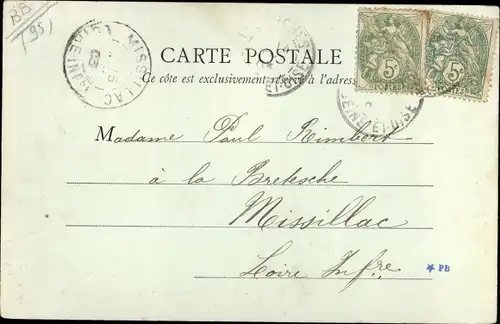 BB
(95)
MISSILLAC
CARTE POSTALE
Ce côte est exclusivement réservé à l'adresse
5 5
POSTES
SEINE-ET-OISE
Madame Paul Rimbert
à la Bretesche
Missillac
Loire Infre
★ PB